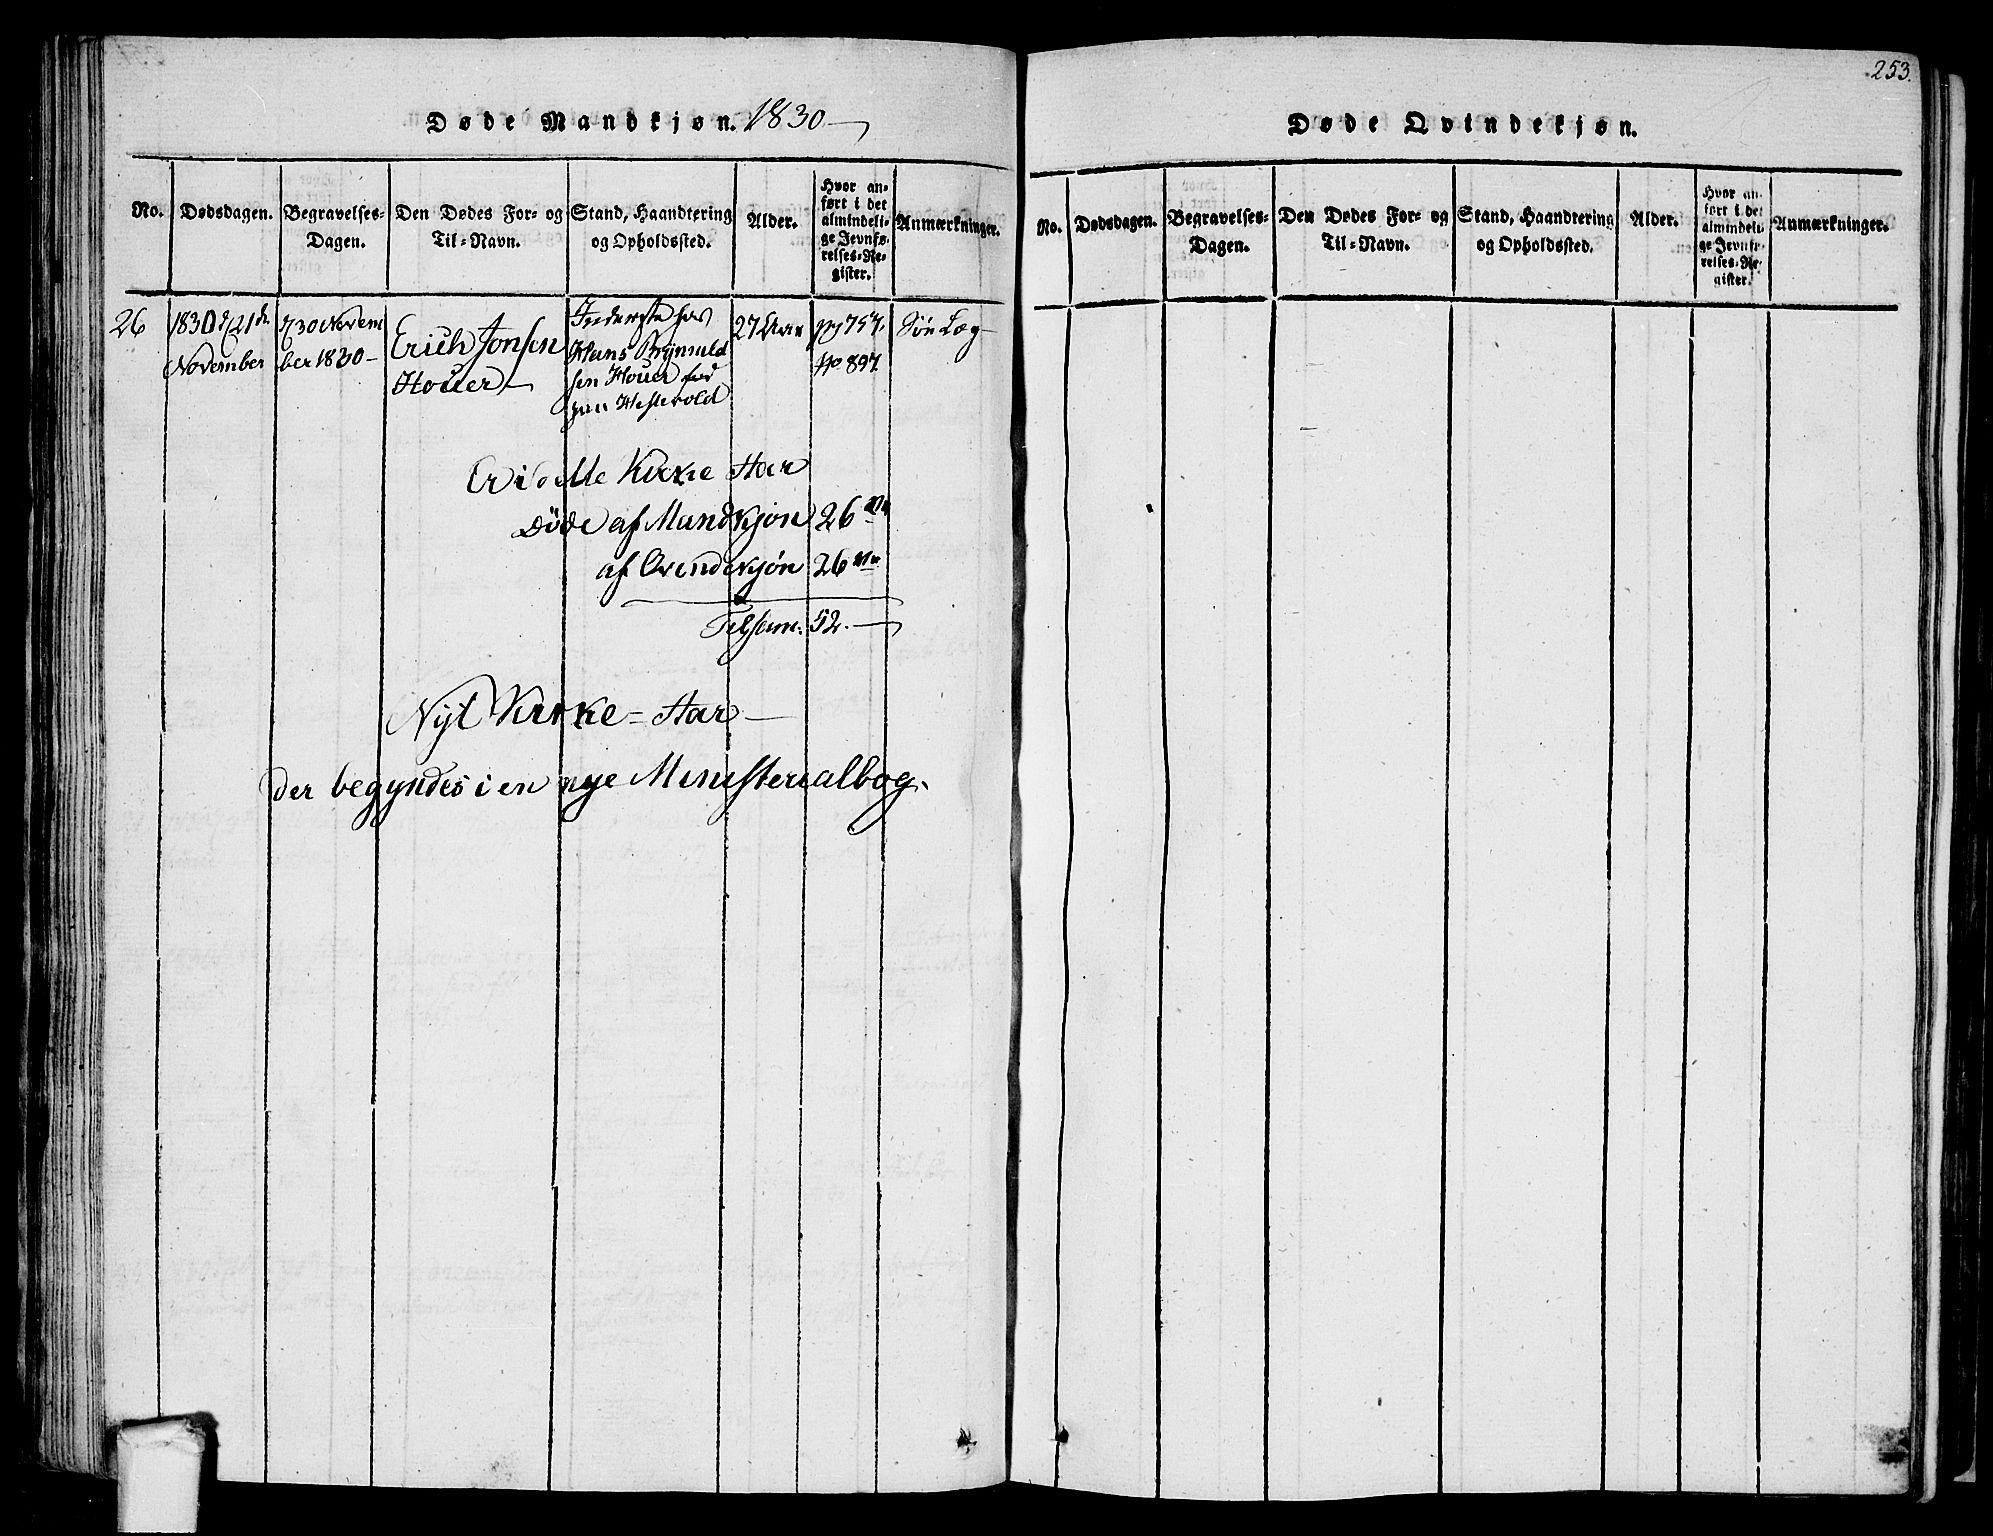 Døde Mandkjøn. 1830
No.
Dødsdagen.
Begravelses-
Dagen.
Den Dødes For- og
Til-Navn.
Stand, Haandtering
og Opholdssted.
Alder.
Hvor an-
ført i det
almindeli-
ge Jevnfø-
relses-Re-
gister.
Anmærkninger.
26
1830 d 21de
November
d 30 Novem
ber 1830
Erich Jonsen
Houer
Inderste hos
Hans Brynuld
sen Houer
Hestevold
27 Aar
pg 757.
No 897.
Søn Læg
Er i dette Kirke Aar
Døde af Mandkjøn 26
af Qvindekjøn 26
Tilsam: 52.
Nyt Kirke=Aar
der begyndes i en nye Ministerialbog.
253.
Døde Qvindekjøn.
No.
Dødsdagen.
Begravelses-
Dagen.
Den Dødes For- og
Til-Navn.
Stand, Haandtering
og Opholdssted.
Alder.
Hvor an-
ført i det
almindeli-
ge Jevnfø-
relses-Re-
gister.
Anmærkninger.